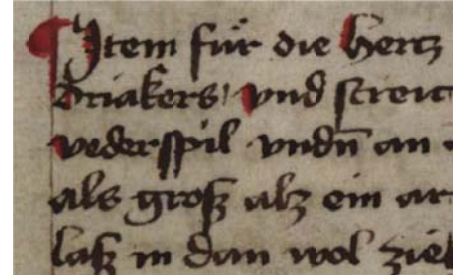 ¶ Item für die hertz
driakers / vnd streic
vederspil vndn̄ an
als grosz alz ein ar
lasz in dan wol zie